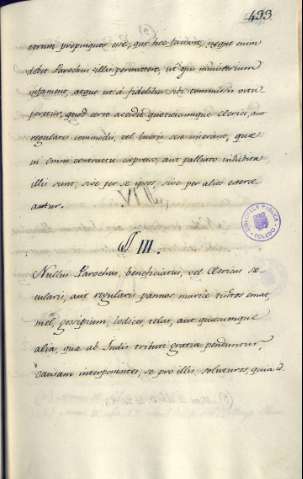 433.
eorum propinquos esse, qui hæc faciant, neque enim
debet Parochus illis permittere, ut qui ministerium
infament, atque ut à fidelibus sibi commissis vitu
peretur, quod certe accidit quotiescumque clerici, aut
regulares commodis, vel lucris se inserant, quæ
in omni contractu expresso, aut palliato inhibita
illis sunt, sive per se ipsos, sive per alios exerce
antur.
§ III.
Nullus Parochus, beneficiarius, vel Clericus se
cularis, aut regularis pannos emat,
mel, gossipium, telas, aut quæcumque
alia, quæ ab Indis tributi gratia penduntur,
causam interponentes, se pro illis soluturos, quia id
BIBLIOTECA PUBLICA
TOLEDO